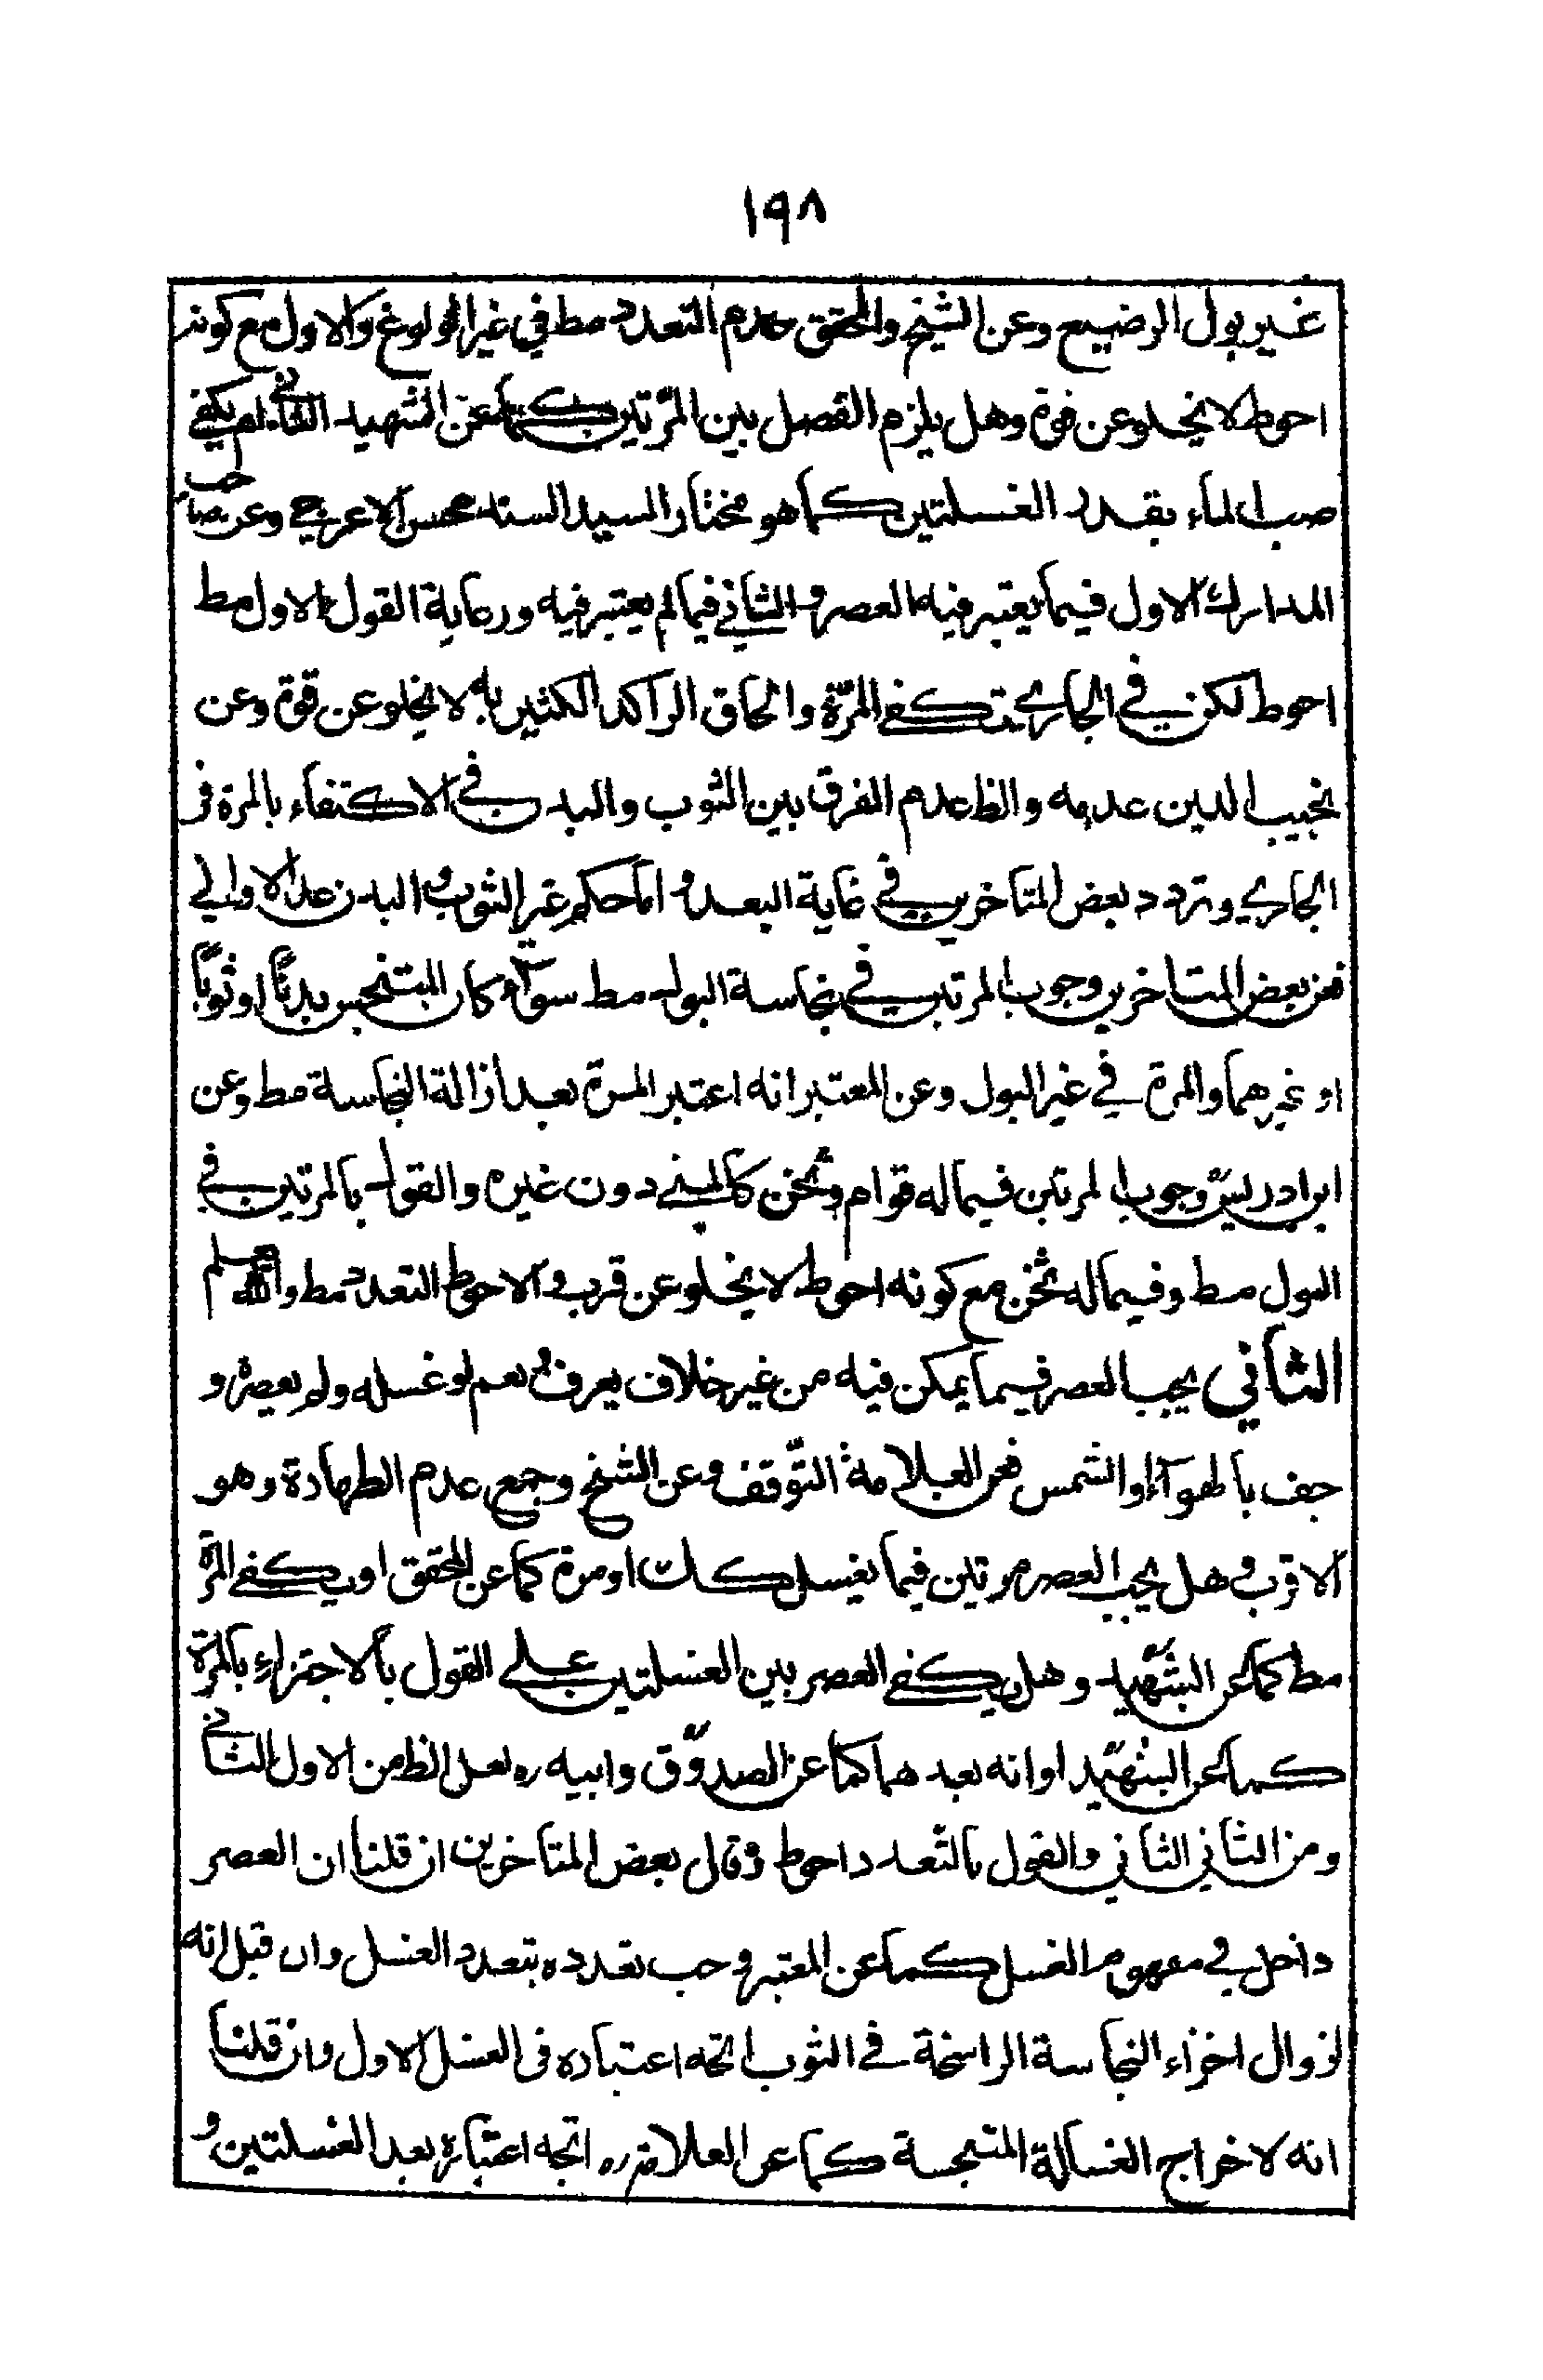 ١٩٨
غير بول الرضيع وعن الشيخ والمحقق عدم التعدد مط في غير الولوغ والاول مع كونه
احوط لا يخلو عن قوة وهل يلزم الفصل بين المرتين كما عن الشهيد الثاني ام يكفي
صب الماء بقدر الغسلتين كما هو مختار السيد السند محسن الاعرجي وعن صاحب
المدارك الاول فيما يعتبر فيه العصر والثاني فيما لم يعتبر فيه ورعاية القول الاول مط
احوط لكن في الجاري تكفي المرّة والحاق الراكد الكثير به لا يخلو عن قوة وعن
نجيب الدين عدمه والظ عدم الفرق بين الثوب والبدن في الاكتفاء بالمرة في
الجاري وتردد بعض المتاخرين في غاية البعد واما حكم غير الثوب والبدن عدا الاواني
فعن بعض المتاخرين وجوب المرتين في نجاسة البول مط سوآء كان المتنجس بدنًا او ثوبًا
او غيرهما والمرة في غير البول وعن المعتبر انه اعتبر المرة بعد ازالة النجاسة مط وعن
ابن ادريس وجوب المرتين فيما له قوام وثخن كالمني دون غيره والقول بالمرتين في
البول مط وفيما له ثخن مع كونه احوط لا يخلو عن قرب والاحوط التعدد مط والله
الثاني يجب العصر فيما يمكن فيه من غير خلاف يعرف نعم لو غسله ولم يعصره و
جف بالهوآء او الشمس فعن العلامة التّوقف وعن الشيخ وجمع عدم الطهارة وهو
الاقرب وهل يجب العصر مرتين فيما يغسل كك او مرة كما عن المحقق او يكفي المرّة
مط كما عن الشهيد وهل يكفي العصر بين الغسلتين على القول بالاجتزاء بالمرة
كما عن الشهيد او انه بعدهما كما عن الصدوق وابيه ره لعل الظ من الاول الثاني
ومن الثاني الثاني والقول بالتعدد احوط وقال بعض المتاخرين ان قلنا ان العصر
داخل في مفهوم الغسل كما عن المعتبر وجب تعدده بتعدد الغسل وان قيل انه
لزوال اجزاء النجاسة الراسخة في الثوب اتجه اعتباره في الغسل الاول وان قلنا
انه لاخراج الغسالة المتنجسة كما عن العلامة ره اتجه اعتباره بعد الغسلتين و